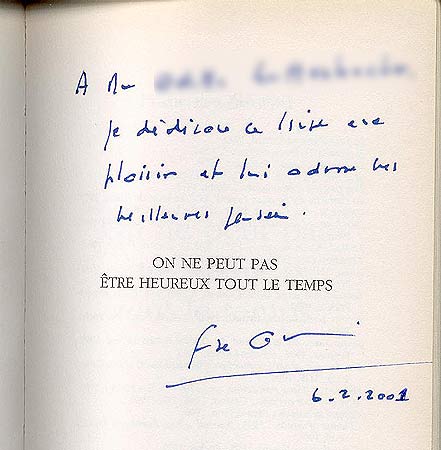 A
je dédicace ce livre avec
plaisir et lui adresse mes
meilleures pensées.
ON NE PEUT PAS
ÊTRE HEUREUX TOUT LE TEMPS
6.2.2001